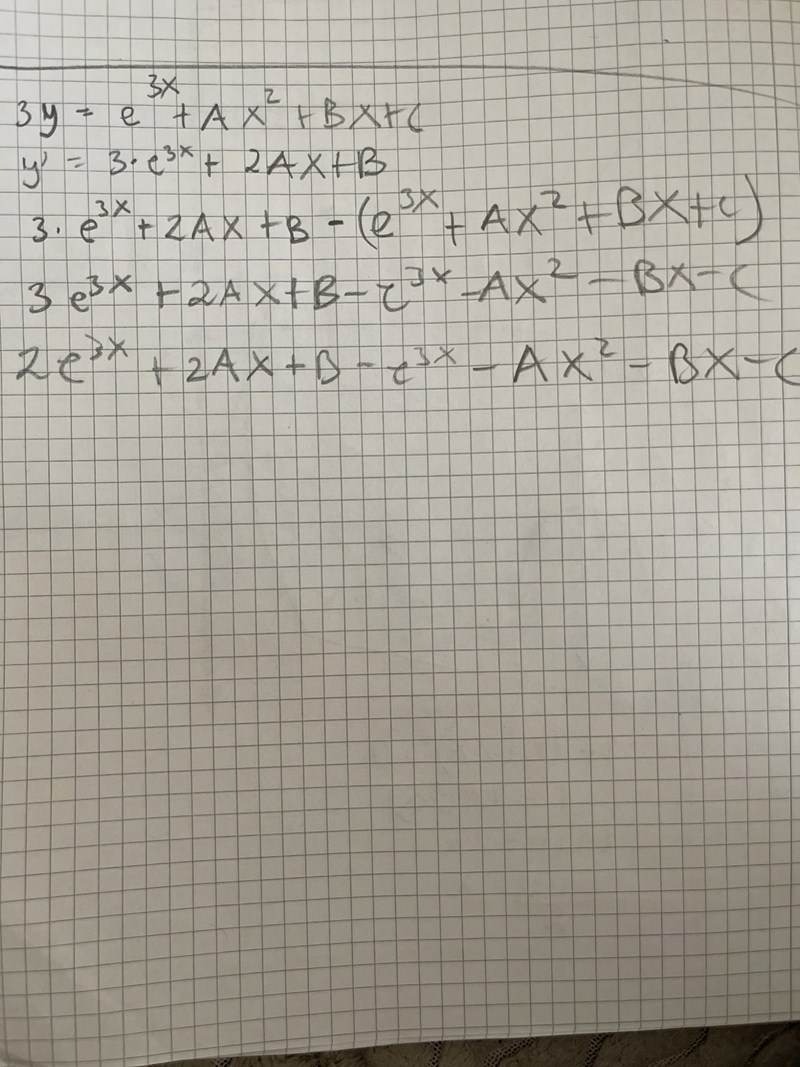 3y = e^3x + Ax² + Bx + C
y' = 3·e^3x + 2Ax + B
3·e^3x + 2Ax + B - (e^3x + Ax² + Bx + C)
3e^3x + 2Ax + B - e^3x - Ax² - Bx - C
2e^3x + 2Ax + B - e^3x - Ax² - Bx - C